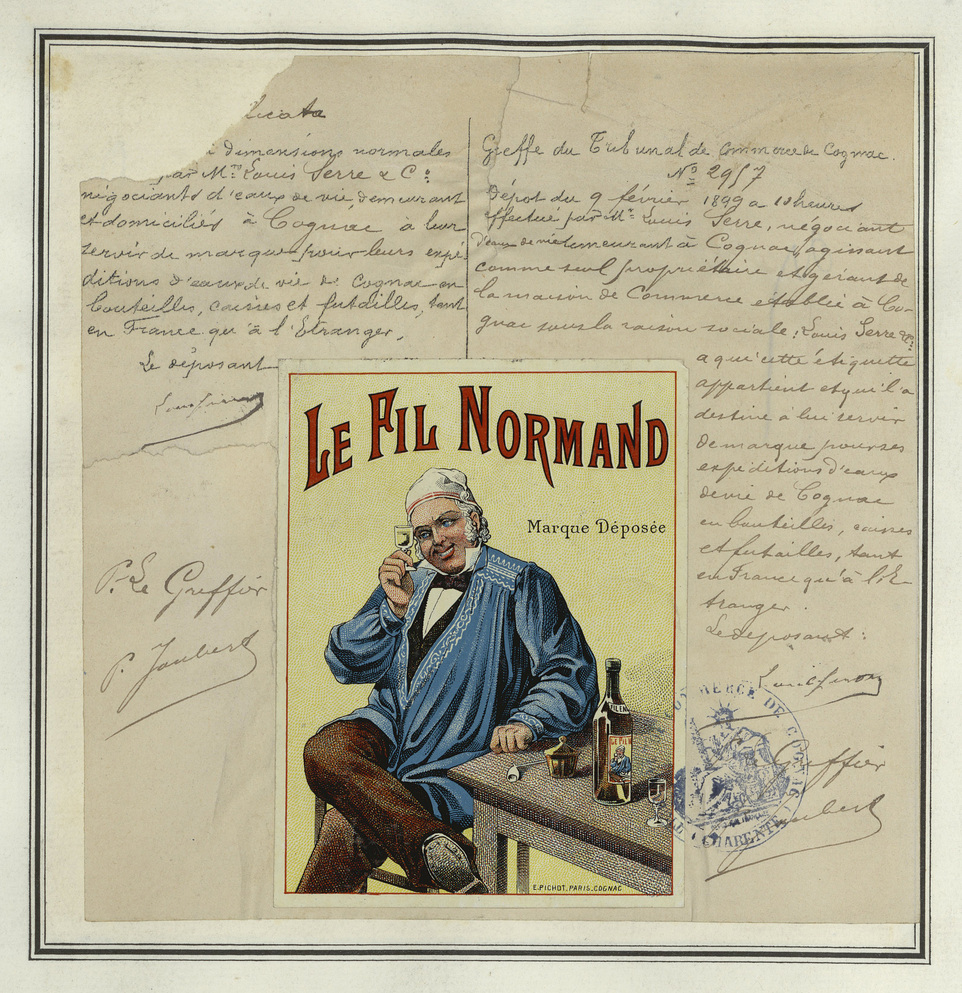 licata
dimensions normales
par Mr. Louis Serre & Co:
négociants d'eaux de vie, demeurant
et domiciliés à Cognac à leur
servir de marque pour leurs expé-
ditions d'eaux de vie de Cognac en
bouteilles, caisses et futailles, tant
en France qu'à l'Etranger.
Le déposant
P. Le Greffier
P. Jaubert
Greffe du Tribunal de Commerce de Cognac.
No 2957
Dépôt du 9 février 1899 à 10 heures
effectué par Mr. Louis Serre, négociant
d'eaux de vie demeurant à Cognac, agissant
comme seul propriétaire et gérant de
la maison de Commerce établie à Co-
gnac sous la raison sociale: Louis Serre & Co:
a qu'cette étiquette
appartient et qu'il a
destine à lui servir
de marque pour ses
expéditions d'eaux
de vie de Cognac
en bouteilles, caisses
et futailles, tant
en France qu'à l'E-
tranger.
Le déposant:
Greffier
Jaubert
LE FIL NORMAND
Marque Déposée
LE FIL
E. PICHOT. PARIS. COGNAC
COMMERCE DE COGNAC
CHARENTE